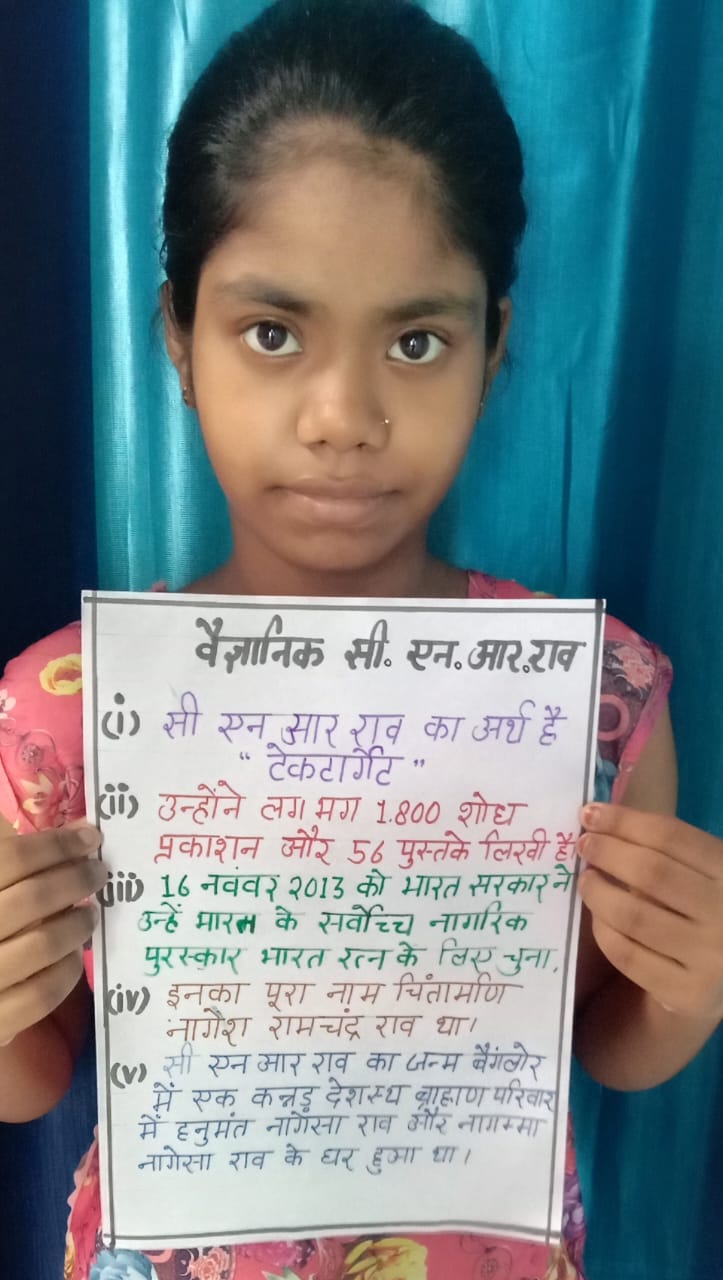 वैज्ञानिक सी. एन. आर. राव
(i) सी एन आर राव का अर्थ है
" टेकटार्गेट "
(ii) उन्होंने लगभग 1.800 शोध
प्रकाशन और 56 पुस्तके लिखी है।
(iii) 16 नवंवर 2013 को भारत सरकार ने
उन्हें भारत के सर्वोच्च नागरिक
पुरस्कार भारत रत्न के लिए चुना.
(iv) इनका पूरा नाम चिंतामणि
नागेश रामचंद्र राव था।
(v) सी एन आर राव का जन्म बैंगलोर
में एक कन्नड़ देशस्थ ब्राह्मण परिवार
में हनुमंत नागेसा राव और नागम्मा
नागेसा राव के घर हुआ था।